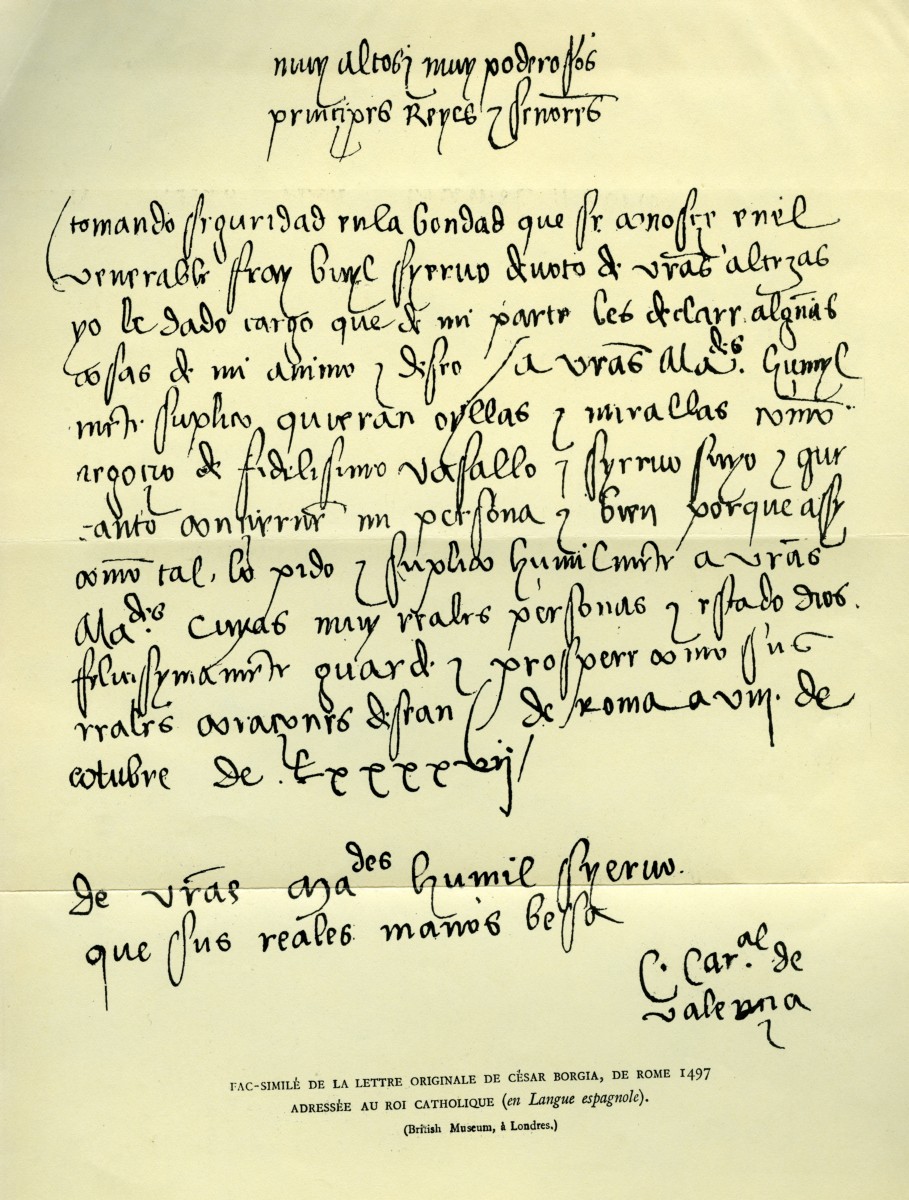 muy altos y muy poderossos
principes Reyes y señores
tomando sseguridad enla bondad que se conosçe enel
venerable fray buyl ssyervo devoto de vras altezas
yo le dado cargo que de mi parte les declare algunas
cosas de mi animo y deseo / a vras Mades. humyl
mete suplico quieran oyllas y mirallas como
negoçio de fidelisimo vasallo y syervo suyo y que
tanto conçierne mi persona y bien porque assy
como tal, lo pido y suplico humilmete a vras
Mades. cuyas muy reales personas y estado dios.
feliçissymamete guarde y prospere como sus
reales coraçones dessean / de Roma a viij. de
otubre de .Lxxxxvij /
de vras Mades humil ssyervo.
que ssus reales manos bessa
C. Car.al de
valençia
FAC-SIMILÉ DE LA LETTRE ORIGINALE DE CÉSAR BORGIA, DE ROME 1497
ADRESSÉE AU ROI CATHOLIQUE (en Langue espagnole).
(British Museum, à Londres.)